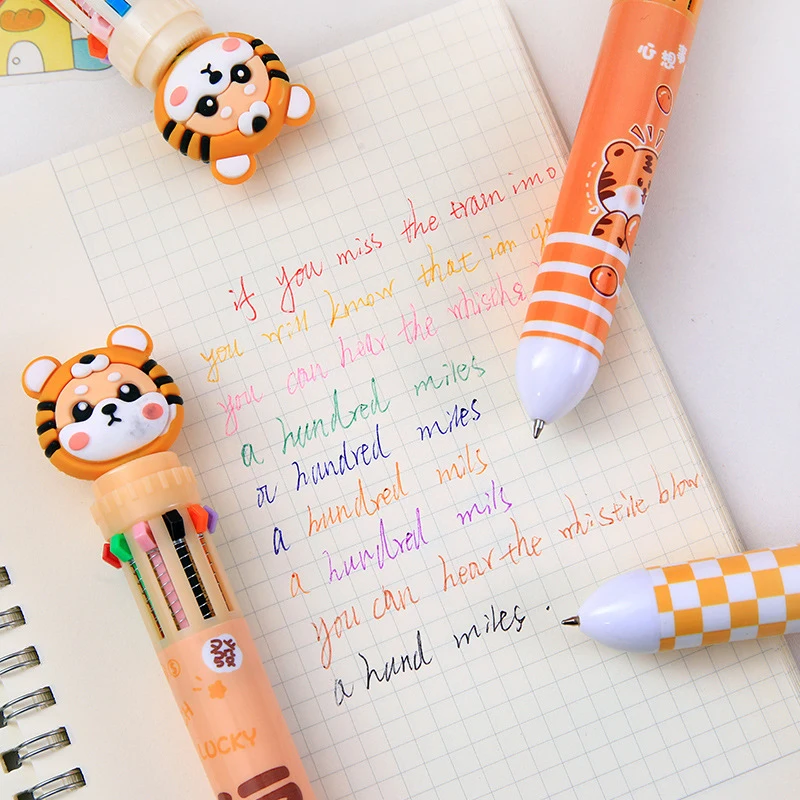 心想
if you miss the tram imo
you will know that iam
you can hear the whisths
a hundred miles
a hundred miles
a hundred mils
a hundred mils
you can hear the whistile blow
a hund miles .
LUCKY